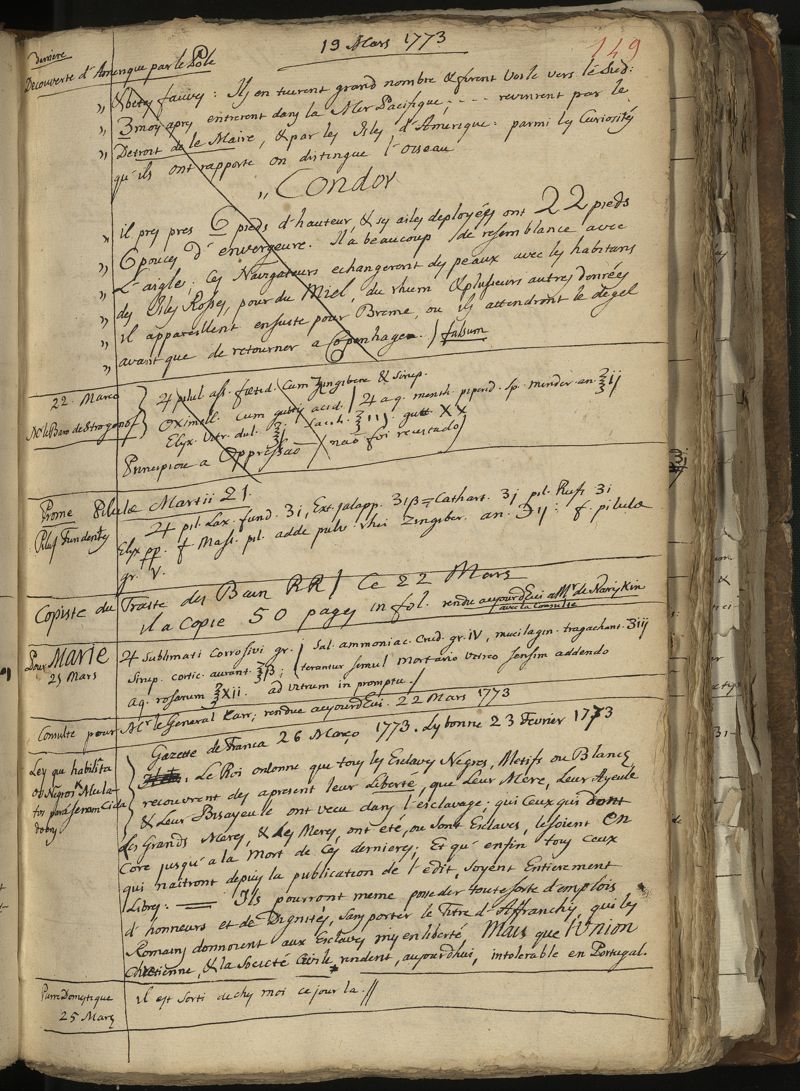 19 Mars 1773
149
derniere
Decouverte d'Amerique par le Pole
„ & betes fauves: Ils en tuerent grand nombre & firent voile vers le Sud:
„ 3 moys apres entrerent dans la Mer Pacifique; - - - - revinrent par le
„ Detroit de le Maire, & par les Isles d'Amerique: parmi les Curiosités
qu'ils ont rapporte on distingue l'oiseau
„ Condor
„ il pres pres 6 pieds d'hauteur, & ses ailes deployées ont 22 pieds
„ 6 pouces d'envergeure. Il a beaucoup de resemblance avec
„ L'aigle; Ces Navigateurs echangeront des peaux avec les habitans
„ des Isles Rosses, pour du Miel, du rhum & plusieurs autres denrées
„ il appareillent ensuite pour Breme, ou ils attendront le degel
„ avant que de retourner a Copenhagen.) falsum
22. Marco
Mr. le Baro de Strogonof
♃ pilul ass. fœtid. Cum Zingibere & Sirup.
Oximell. cum guttis acid. / ♃ aq. menth. piperid. Sp. minder. an. ℥ij
Elyx. Vitr. dul. ℥j. Sacch. ℥iij. gutt XX
Principiou a Oppressaõ / naõ foi recuscado
Prome Pilulæ Martii 21.
Piluls Fundentes
♃ pil. Lax. fund. ʒi, Ext. jalapp. ʒiβ = Cathart. ʒj pil. Rufi ʒi
Elyx pp. f Mass. pil. adde pulv. rhei Zingiber. an. ʒij: f. pilulæ
gr. V.
Copiste du Traite des Bain RR / Ce 22 Mars
il a Copie 50 pages in fol. rendu aujourd'Eui a Mr. de Narijkin
avec la Consulte
Pour Marie
21 Mars
♃ Sublimati Corrosivi gr. / Sal. ammoniac. Crud. gr. IV, mucilagin. tragachant. ʒiij
Sirup. cortic. aurant. ℥β; terantur simul mortario vitreo sensim addendo
aq. rosarum ℥xii. ad vitrum in promptu./
Consulte pour Mr. le General Carr; rendue aujourdEui. 22 Mars 1773
Gazette de Franca 26 Março 1773. Lybonne 23 Fevrier 1773
Ley que habilita
os Negros & Mula-
tos para serem Cida
doẽs
Le Roi ordonne que tous les Esclaves Negres, Metifs ou Blancs
recouvrent des apresent leur Liberté, que Leur Mere, Leur Ayeule
& Leur Bisayeule ont vecu dans l'esclavage; qui Ceux qui dont
Les Grands Meres, & les Meres, ont été, ou sont Esclaves, le soient en
Core jusqu'a la Mort de Ces dernieres; Et qu'enfin tous Ceux
qui naîtront depuis la publication de l'edit, Soyent Entierement
Libres. — Ils pourront meme posseder toute sorte d'emplois
d'honneurs et de Dignités, sans porter le Titre d'Affranchis, qui les
Romains donnoient aux Esclaves mis en liberté Mais que l'Union
Chretienne, & la Societé Civile rendent, aujourdhui, intolerable en Portugal.
Pierre Domestique
25 Mars
il est sorti de chez moi ce jour la. //